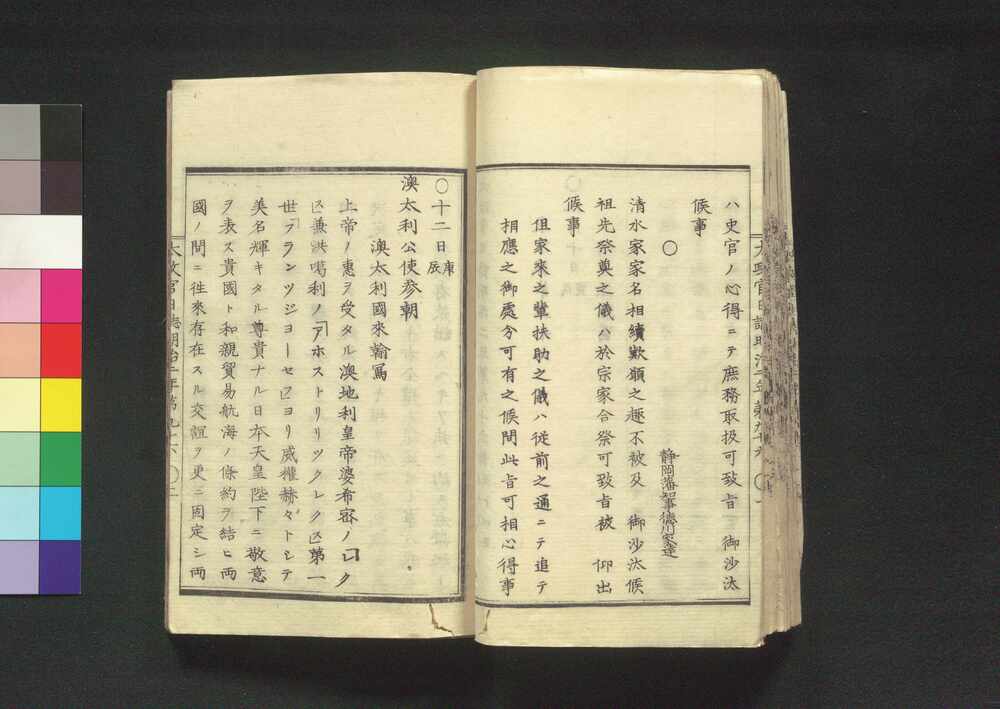 ハ史官ノ心得ニテ庶務取扱可致旨　御沙汰
候事
○　静岡藩知事徳川家達
清水家家名相續歎願之趣不被及　御沙汰候
祖先祭奠之儀ハ於宗家合祭可致旨被　仰出
候事
但家來之輩扶助之儀ハ従前之通ニテ追テ
相應之御處分可有之候間此旨可相心得事
○十二日庚辰
澳太利公使参朝
澳太利國來翰寫
上帝ノ惠ヲ受タル澳地利皇帝婆希密ノ「ロク
」兼洪噶利ノ「アホストリリツクレク」第一
世「フランツジヨーセフ」ヨリ威權赫々トシテ
美名輝キタル尊貴ナル日本天皇陛下ニ敬意
ヲ表ス貴國ト和親貿易航海ノ條約ヲ結ヒ両
國ノ間ニ往來存在スル交誼ヲ更ニ固定シ両
太政官日誌明治二年第九十六　○二